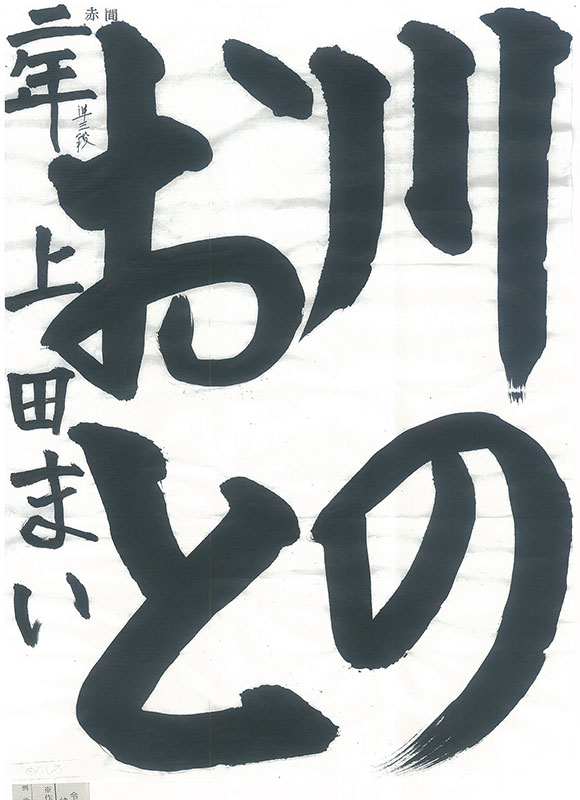 川の
おと
二年 上田まい
準三段
赤間